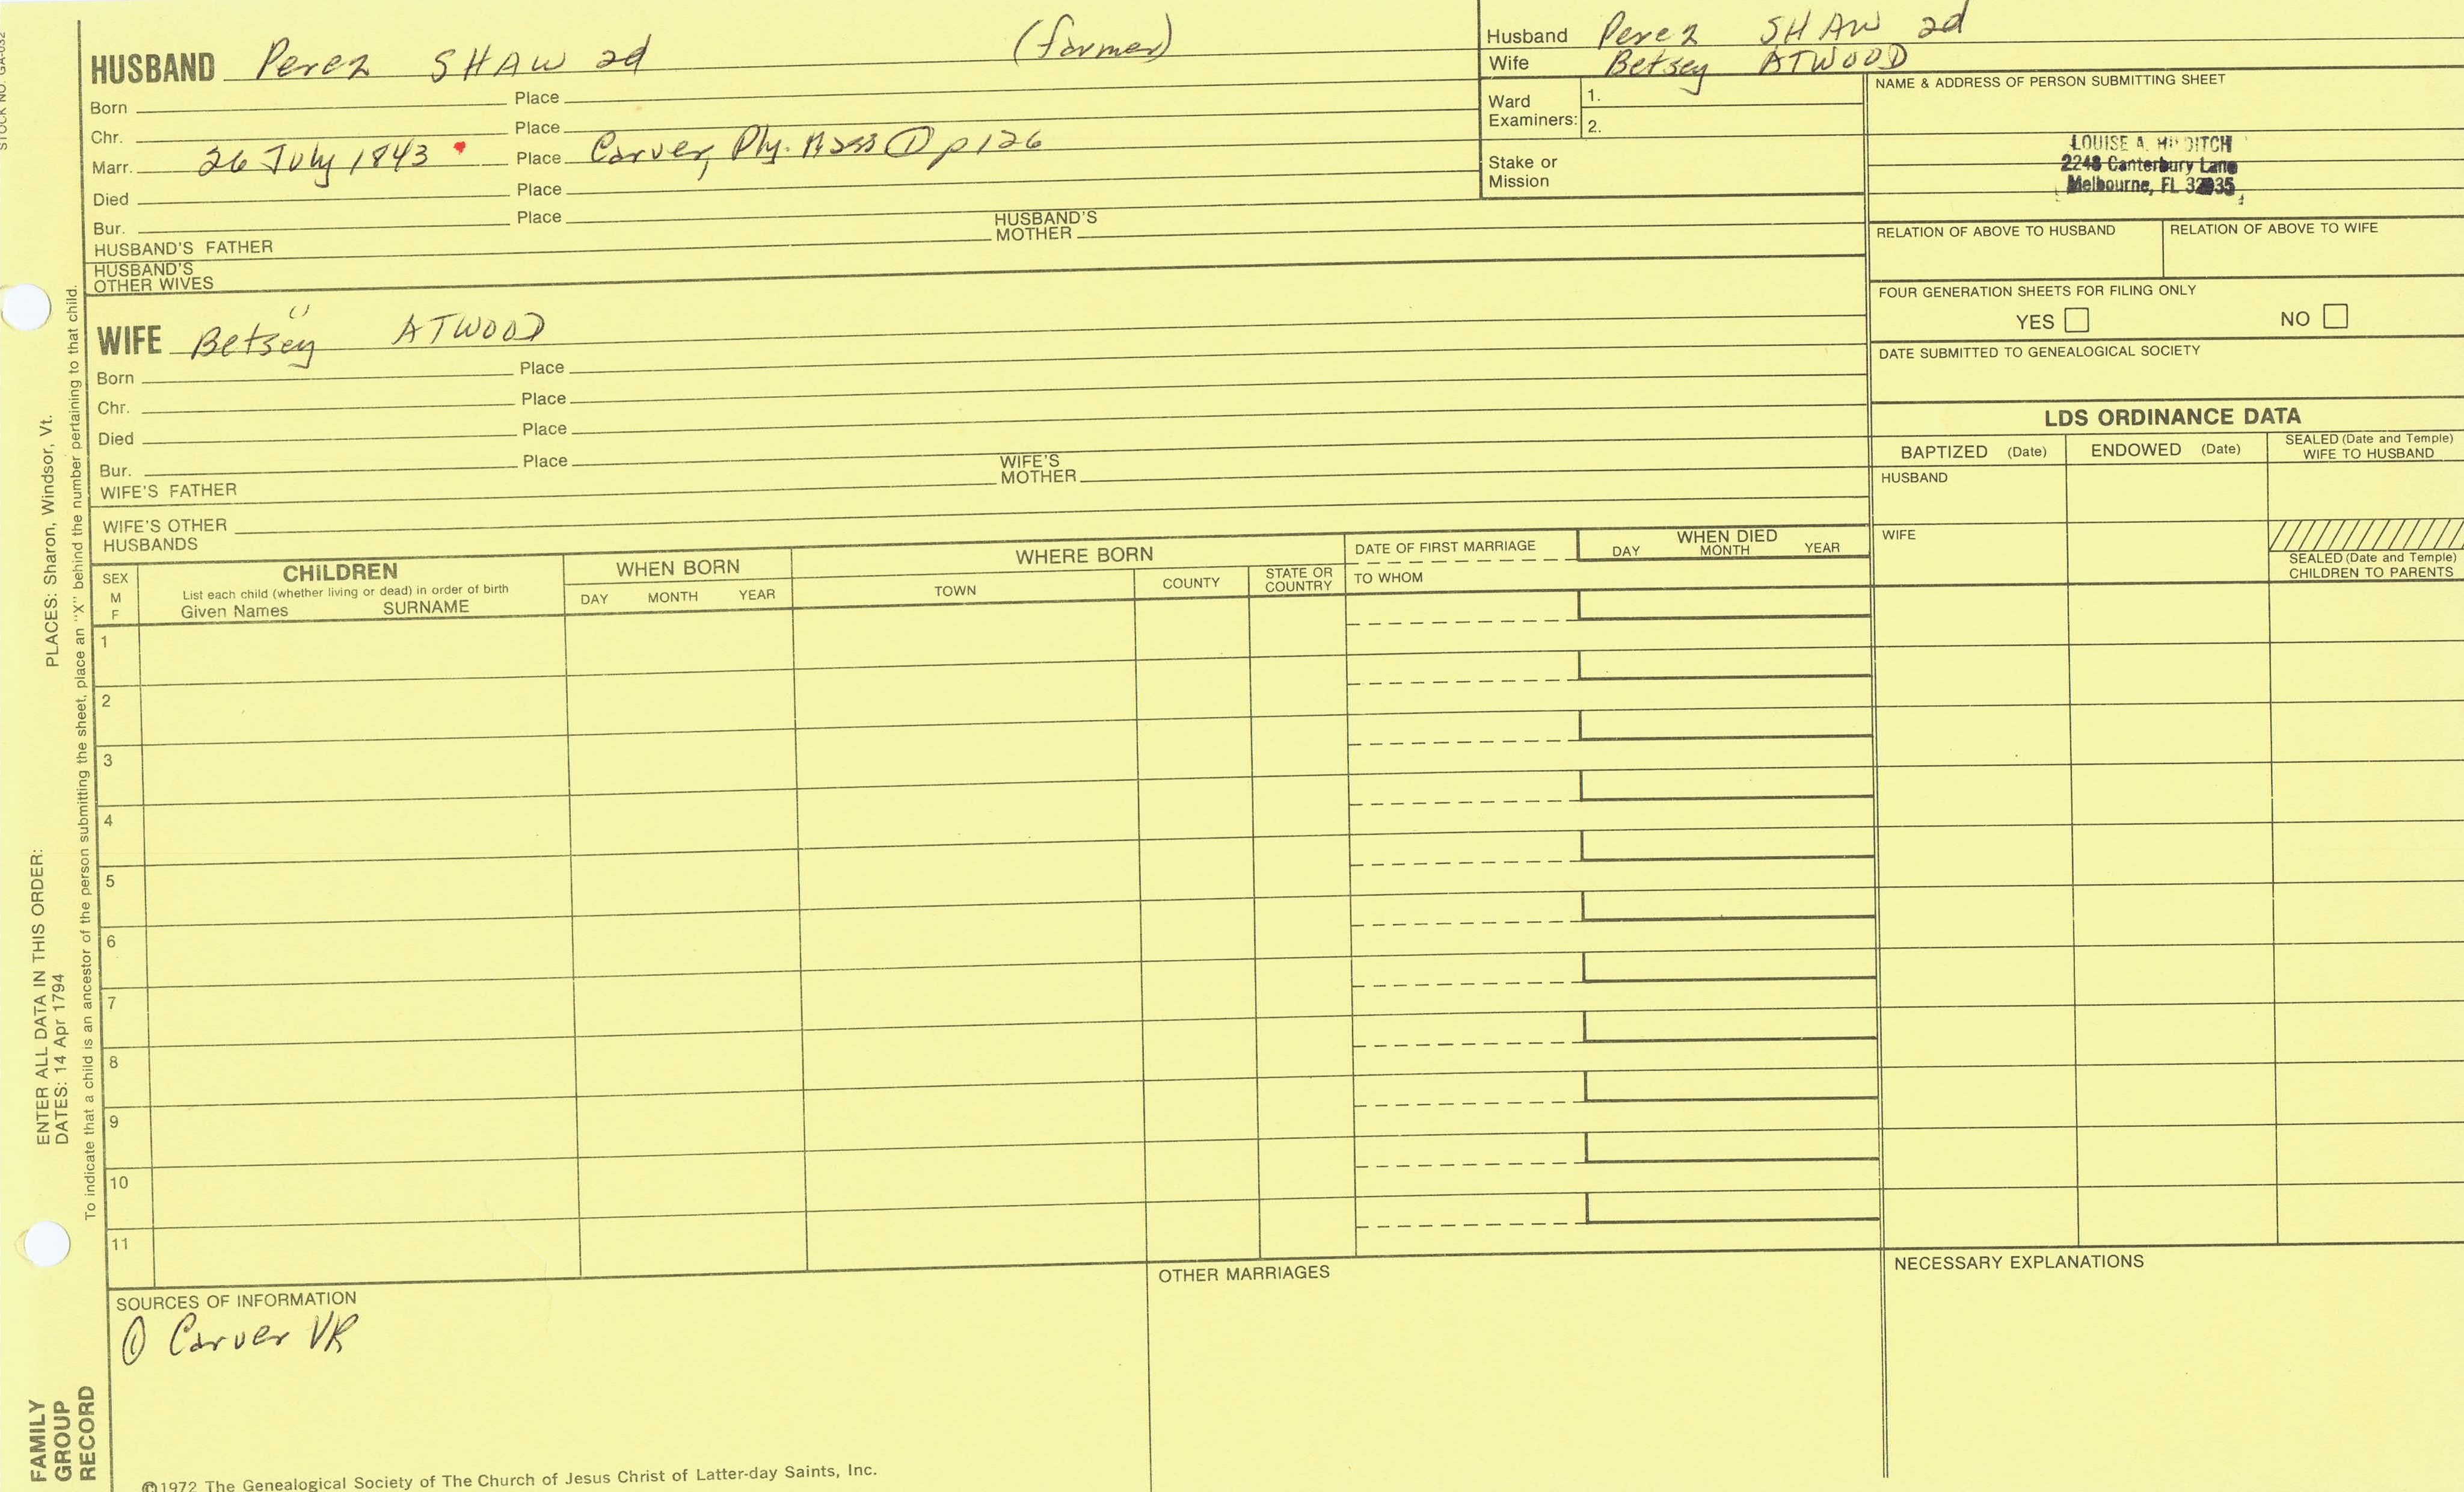 STOCK NO. GA-032
HUSBAND Perez SHAW 2d (farmer)
Born Place
Chr. Place
Marr. 26 July 1843 Place Carver, Ply. Mass ① p 126
Died Place
Bur. Place
HUSBAND'S FATHER HUSBAND'S MOTHER
HUSBAND'S OTHER WIVES
Husband Perez SHAW 2d
Wife Betsey ATWOOD
Ward Examiners: 1.
2.
Stake or Mission
NAME & ADDRESS OF PERSON SUBMITTING SHEET
LOUISE A.
2248 Canterbury Lane
Melbourne, FL 32935
RELATION OF ABOVE TO HUSBAND RELATION OF ABOVE TO WIFE
FOUR GENERATION SHEETS FOR FILING ONLY
YES NO
DATE SUBMITTED TO GENEALOGICAL SOCIETY
WIFE Betsey ATWOOD
Born Place
Chr. Place
Died Place
Bur. Place
WIFE'S FATHER WIFE'S MOTHER
WIFE'S OTHER HUSBANDS
LDS ORDINANCE DATA
BAPTIZED (Date) ENDOWED (Date) SEALED (Date and Temple) WIFE TO HUSBAND
HUSBAND
WIFE
SEALED (Date and Temple) CHILDREN TO PARENTS
SEX M F
CHILDREN
List each child (whether living or dead) in order of birth
Given Names SURNAME
WHEN BORN
DAY MONTH YEAR
WHERE BORN
TOWN COUNTY STATE OR COUNTRY
DATE OF FIRST MARRIAGE
TO WHOM
WHEN DIED
DAY MONTH YEAR
1
2
3
4
5
6
7
8
9
10
11
SOURCES OF INFORMATION
① Carver VR
OTHER MARRIAGES
NECESSARY EXPLANATIONS
©1972 The Genealogical Society of The Church of Jesus Christ of Latter-day Saints, Inc.
FAMILY GROUP RECORD
ENTER ALL DATA IN THIS ORDER:
DATES: 14 Apr 1794
PLACES: Sharon, Windsor, Vt.
To indicate that a child is an ancestor of the person submitting the sheet, place an "X" behind the number pertaining to that child.